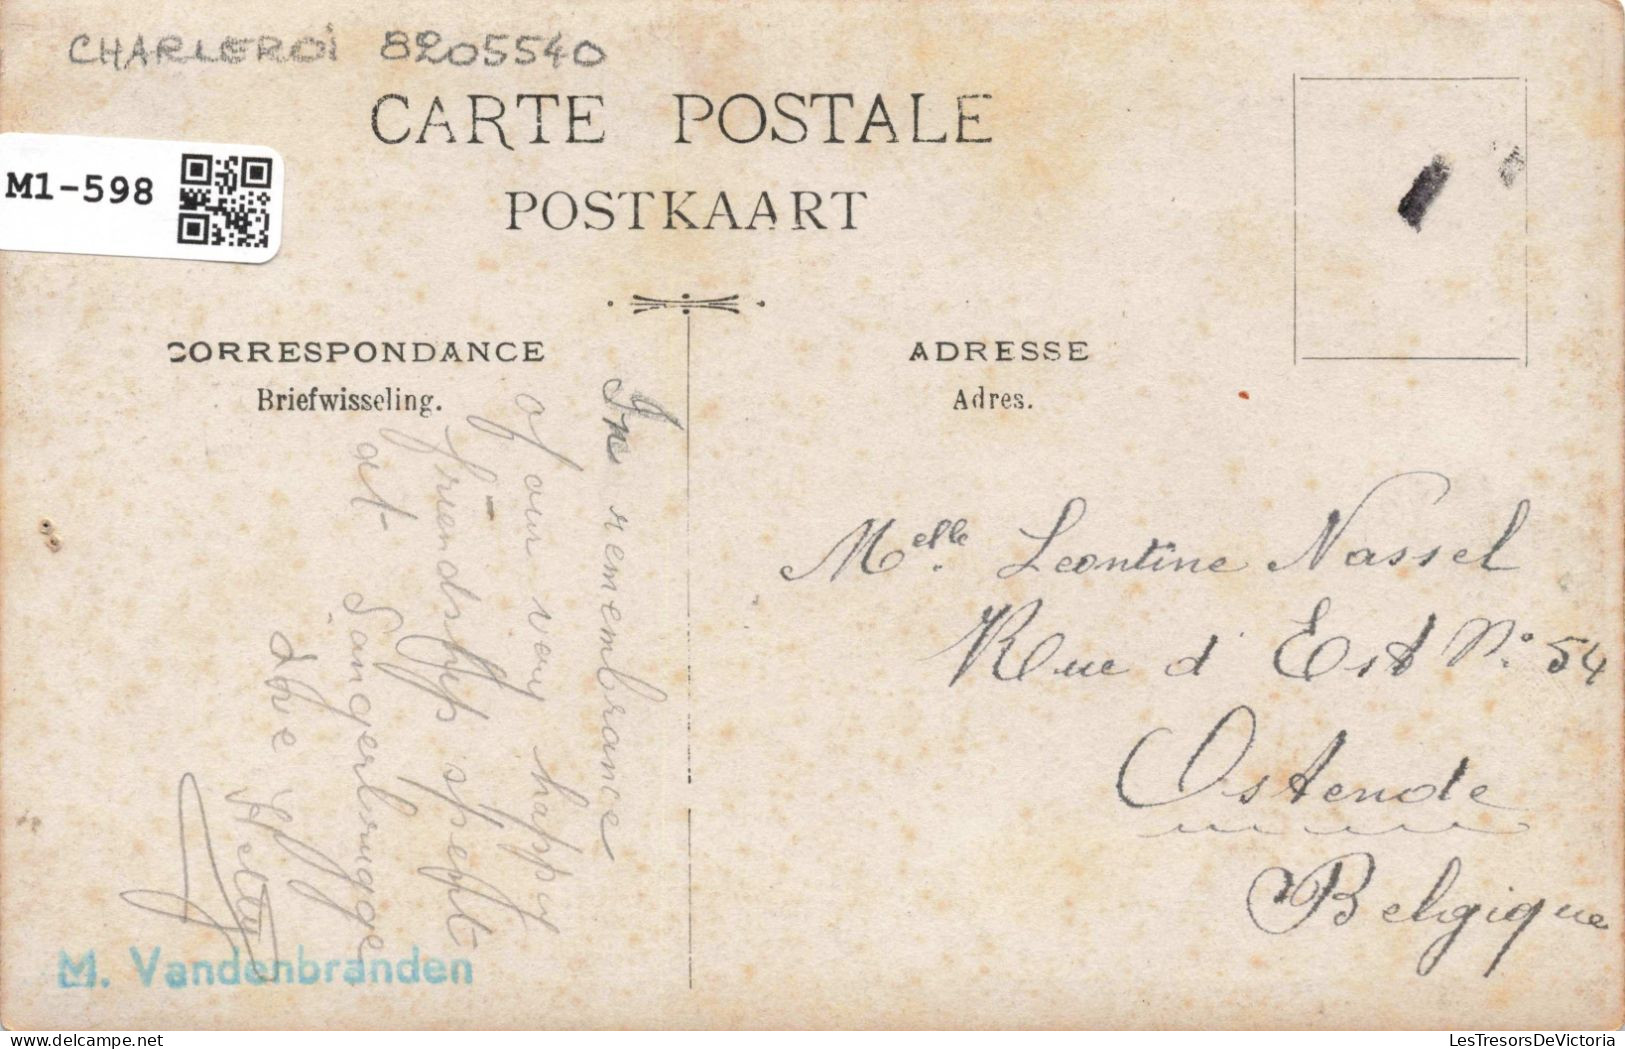 CHARLEROi 8205540
CARTE POSTALE
POSTKAART
M1-598
CORRESPONDANCE
Briefwisseling.
ADRESSE
Adres.
In remembrance
of our very happy
friendship spent
at Sangerbrugge
Melle. Leontine Nassel
Rue d'Est No. 54
Ostende
Belgique
M. Vandenbranden
LesTresorsDeVictoria
delcampe.net